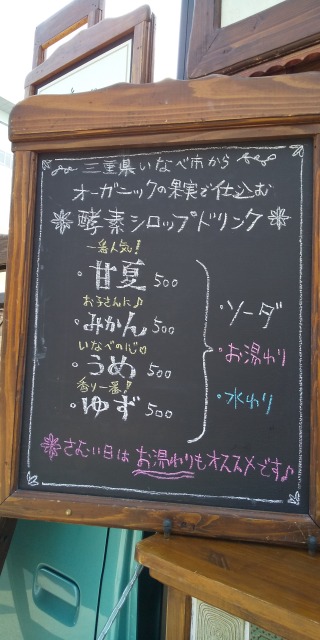 三重県いなべ市から
オーガニックの果実で仕込む
酵素シロップドリンク
一番人気!
・甘夏 500
お子さんに♪
・みかん 500
いなべの心♡
・うめ 500
香り一番!
・ゆず 500
・ソーダ
・お湯わり
・水わり
さむい日はお湯わりもオススメです♪